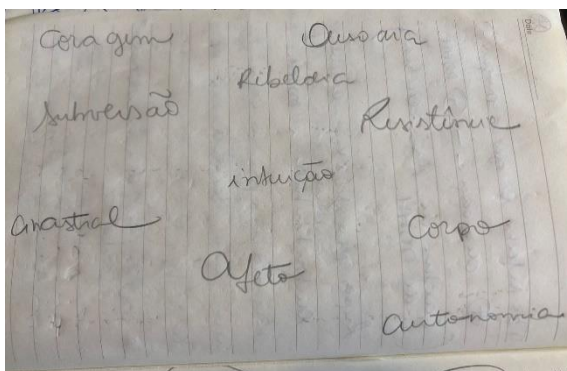 Coragem Ousadia
Ribeldia
Subversão
Resistênuc
intuição
anastral Corpo
Afeto
autonomia